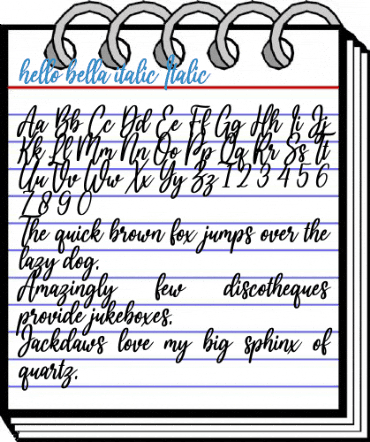 hello bella italic Italic
Aa Bb Cc Dd Ee Ff Gg Hh Ii Jj
Kk Ll Mm Nn Oo Pp Qq Rr Ss Tt
Uu Vv Ww Xx Yy Zz 1 2 3 4 5 6
7 8 9 0
The quick brown fox jumps over the
lazy dog.
Amazingly few discotheques
provide jukeboxes.
Jackdaws love my big sphinx of
quartz.